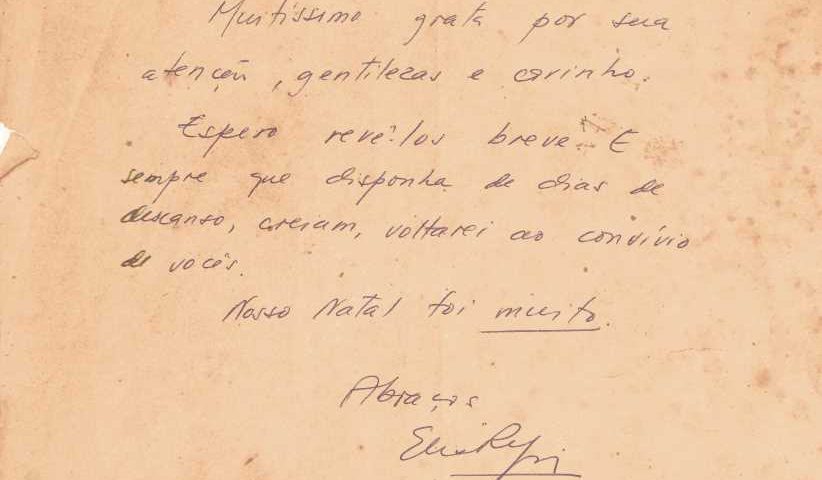 Muitissimo grata por sua
atenção, gentilezas e carinho.
Espero revê-los breve. E
sempre que disponha de dias de
descanso, creiam, voltarei ao convívio
de vocês.
Nosso Natal foi muito.
Abraços
Elis Regina